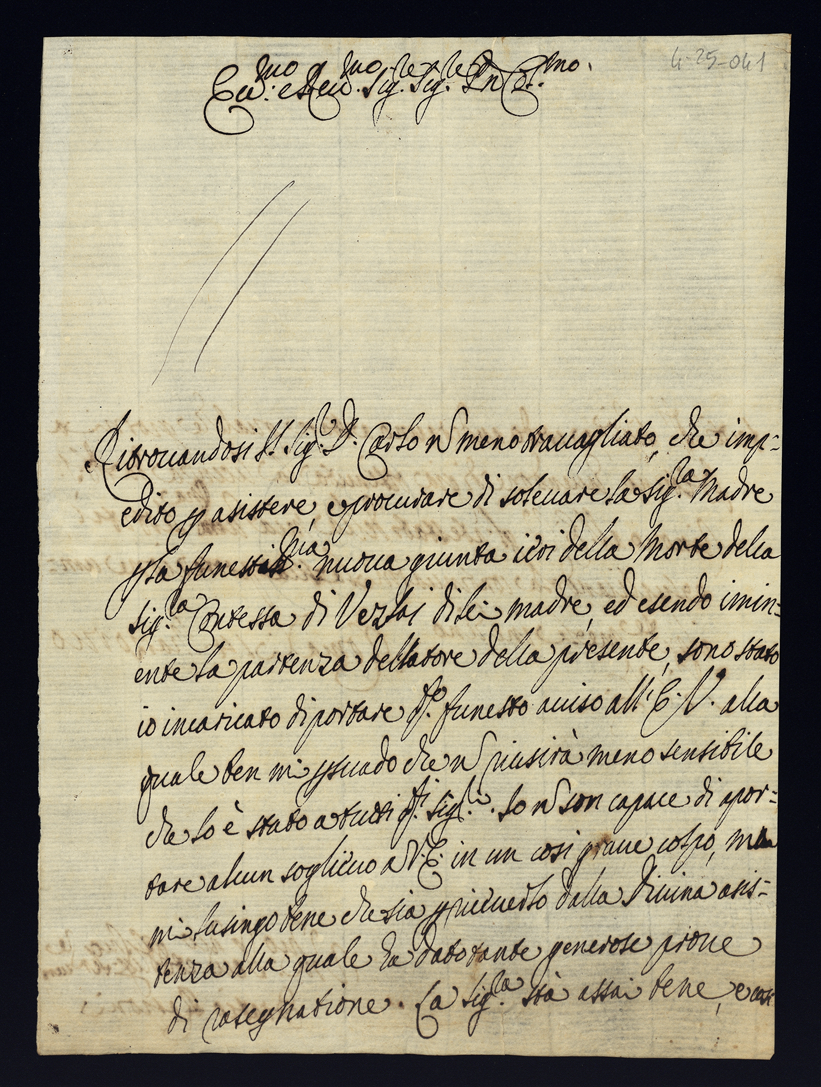 4-25-041
Ecc.mo e Rev.mo Sig.re Sig.re P.n Col.mo
Ritrouandosi il Sig.r D. Carlo ñ meno trauagliato, che imp=
edito p asistere e procurare di soleuare la Sig.ra Madre
p la funestiss.ma nuoua giunta ieri della Morte della
Sig.ra Contessa di Verzai di lei madre, ed esendo imin=
ente la partenza del latore della presente, sono stato
io incaricato di portare q.to funesto auiso all' E. V. alla
quale ben mi psuado che ñ riusirà meno sensibile
che lo è stato a tutti q.ti Sig.ri. Io ñ son capace di apor=
tare alcun soglieuo a V. E. in un cosi graue colpo, ma
mi lusingo bene che sia p riceuerlo dalla Diuina asis=
tenza alla quale ha dato tante generose proue
di rasegnatione. La Sig.ra stà assai bene, e cosi